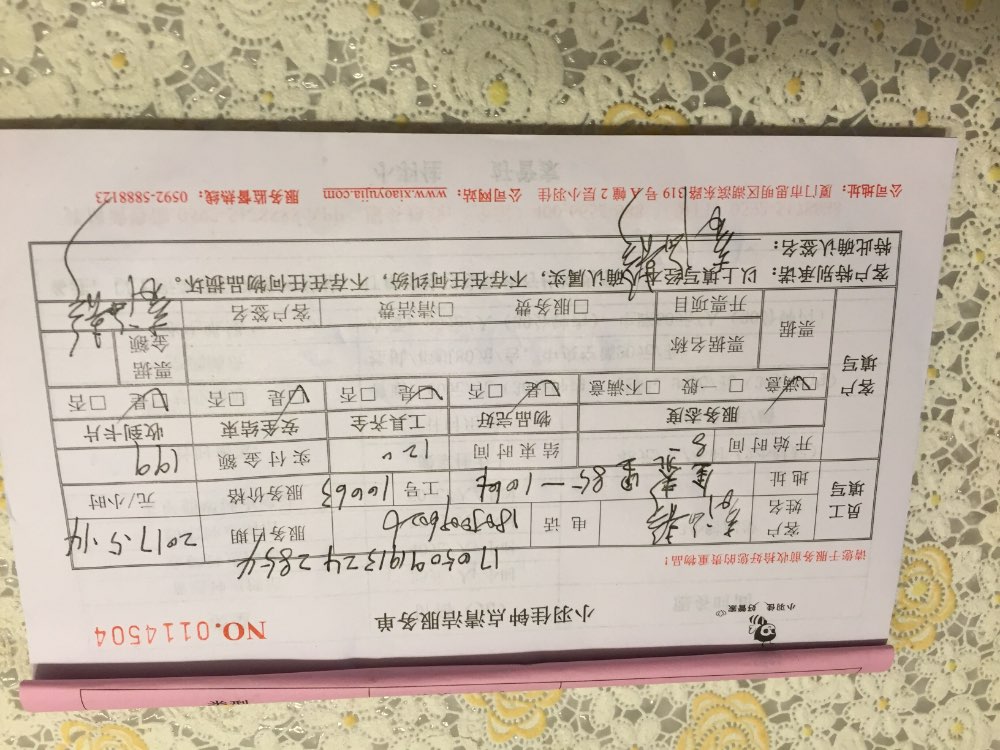 小羽佳 好管家
小羽佳钟点清洁服务单
NO.0114504
请您于服务前收拾好您的贵重物品！
员工填写
客户姓名
电话
服务日期 2017.5.14
地址
工号 16663
服务价格 元/小时
开始时间 8
结束时间 12
实付金额 199
服务态度 物品完好 工具齐全 安全结束 收到卡片
☑满意 □一般 □不满意 ☑是 □否 ☑是 □否 ☑是 □否 ☑是 □否
客户填写
票据 票据名称 票据金额
开票项目 □服务费 □清洁费 客户签名
客户特别承诺：以上填写经本人确认属实，不存在任何纠纷，不存在任何物品损坏。
特此确认签名：
公司地址：厦门市思明区湖滨东路319号A幢2层小羽佳 公司网站：www.xiaoyujia.com 服务监督热线：0592-5888123